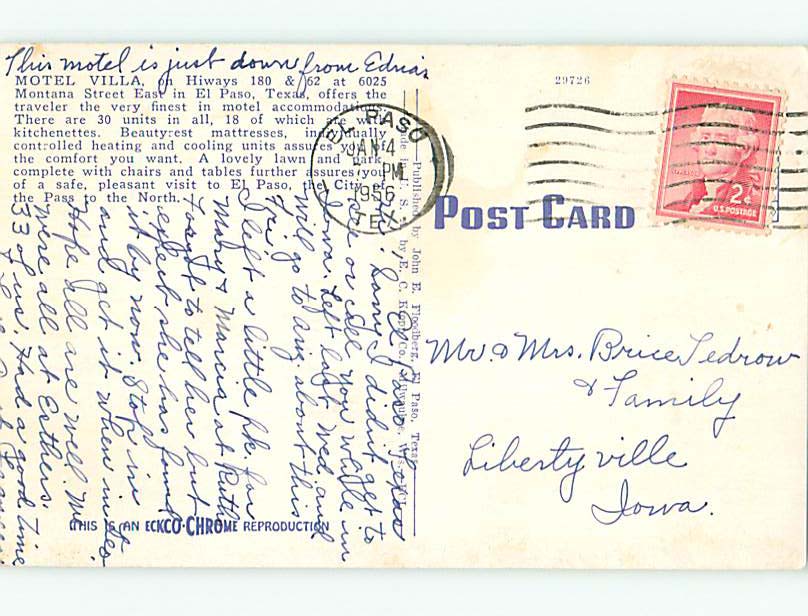 This motel is just down from Edna's
MOTEL VILLA, on Hiways 180 & 62 at 6025
Montana Street East in El Paso, Texas, offers the
traveler the very finest in motel accommodations.
There are 30 units in all, 18 of which are with
kitchenettes. Beautyrest mattresses, individually
controlled heating and cooling units assures you of
the comfort you want. A lovely lawn and park
complete with chairs and tables further assures you
of a safe, pleasant visit to El Paso, the City of
the Pass to the North.
29726
EL PASO
JAN 4
PM
1956
TEX.
2¢
U.S. POSTAGE
POST CARD
—Published by John E. Floodberg, El Paso, Texas
Made in U. S. A. by E. C. Kropp Co., Milwaukee, Wis.
El Paso, Texas
Sorry I didn't get to
see or call you while in
Iowa. Left last Wed. and
will go to Ariz. about this
Fri.
I left a little pk. for
Mary & Marcia at Ruth
Forgot to tell her but
expect she has found
it by now. Stop in
and get it when in
Hope all are well. We
were all at Esthers.
33 of us. Had a good time
Mr. & Mrs. Brice Tedrow
& Family
Libertyville
Iowa.
THIS IS AN ECKCO-CHROME REPRODUCTION